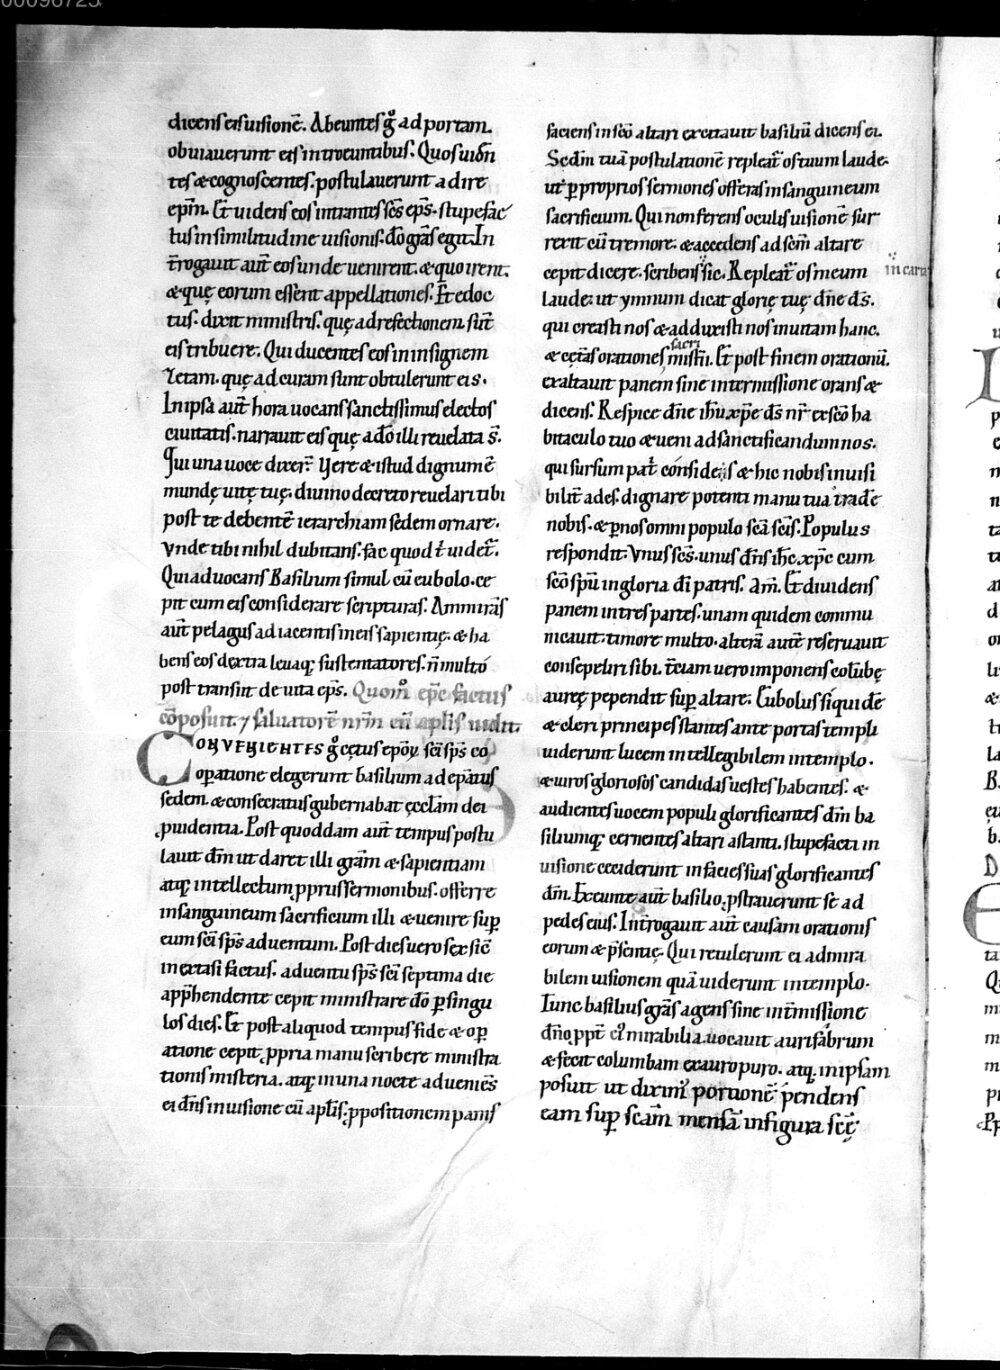 00098725
dicens eis uisionē. Abeuntes g̊ ad portam.
obuiauerunt eis introeuntibus. Quos uidn̄
tes & cognoscentes. postulauerunt adire
ep̄m. Et uidens eos intrantes sc̄s ep̄s. stupefac
tus in similitudine uisionis. dō grās egit. In
t̄rogauit aut̄ eos unde uenirent. & quo irent.
& quę eorum essent appellationes. Et edoc
tus. dixit ministris. quę ad refectionem sūt
eis tribuere. Qui ducentes eos in insignem
zetam. quę ad curam sunt obtulerunt eis.
In ipsa aut̄ hora uocans sanctissimus electos
ciuitatis. narrauit eis quę a dō illi reuelata s̄.
Qui una uoce dixer̄. Vere & istud dignum ē
mundę uitę tuę. diuino decreto reuelari tibi
post te debentē ierarchiam sedem ornare.
Vnde tibi nihil dubitans. fac quod t̄ uidet̄.
Qui aduocans Basilium simul cū eubolo. ce
pit cum eis considerare scripturas. Ammirās
aut̄ pelagus adiacentis in eis sapientię. & ha
bens eos dextra leuaq; sustentatores. ñ multo
post transiit de uita ep̄s. Quom̊ ep̄c factus
cōposuit. ⁊ saluatorē nrm̄ cū ap̄lis uidit.
CONVENIENTES g̊ cętus ep̄oꝝ. sc̄i sp̄s co
oꝑatione elegerunt basilium ad ep̄atus
sedem. & consecratus gubernabat ęccl̄am dei
ꝓuidentia. Post quoddam aut̄ tempus postu
lauit dm̄ ut daret illi grām & sapientiam
atq; intellectum ꝓpriis sermonibus. offerre
insanguineum sacrificium illi & uenire suꝑ
eum sc̄i sp̄s aduentum. Post dies uero sex sic̄
in extasi factus. aduentu sp̄s sc̄i septima die
app̄hendente cepit ministrare dō ꝑ singu
los dies. Et post aliquod tempus fide & oꝑ
atione cepit ꝓpria manu scribere ministra
tionis misteria. atq; in una nocte adueniēs
ei dn̄s in uisione cū ap̄lis. ꝓpositionem panis
faciens in sc̄o altari excitauit basiliū dicens ei.
Scd̄m tuā postulationē repleat̄ os tuum laude.
ut ꝑ proprios sermones offeras insanguineum
sacrificium. Qui non ferens oculis uisionē sur
rexit cū tremore. & accedens ad sc̄m altare
cepit dicere. scribens sic. Repleat̄ os meum
in carta
laude. ut ymnum dicat glorię tuę dn̄e d̄s.
qui creasti nos & adduxisti nos in uitam hanc.
sacri
& cęt̄as orationes mist̄ii. Et post finem orationū.
exaltauit panem sine intermissione orans &
dicens. Respice dn̄e ih̄u xp̄e d̄s nr̄ ex sc̄o ha
bitaculo tuo & ueni ad sanctificandum nos.
qui sursum pat̄ cōsidens & hic nobis inuisi
bilit̄ ades. dignare potenti manu tua tradē
nobis. & ꝑ nos omni populo sc̄a sc̄is. Populus
respondit. Vnus sc̄s. unus dn̄s ih̄c xp̄c cum
sc̄o spū in gloria dī patris. am̄. Et diuidens
panem in tres partes. unam quidem commu
nicauit timore multo. alterā autē reseruauit
consepeliri sibi. t̄ciam uero imponens colūbę
aureę pependit suꝑ altare. Eubolus siquidē
& cleri principes stantes ante portas templi
uiderunt lucem intellegibilem in templo.
& uiros gloriosos candidas uestes habentes. &
audientes uocem populi glorificantes dm̄ ba
siliumq; cernentes altari astanti. stupefacti in
uisione ceciderunt in facies suas glorificantes
dm̄. Exeunte aut̄ basilio. ꝓstrauerunt se ad
pedes eius. Int̄rogauit aut̄ causam orationis
eorum & p̄sentię. Qui retulerunt ei admira
bilem uisionem quā uiderunt in templo.
Tunc basilius grās agens sine int̄missione
dn̄o ꝓpt̄ ei᷒ mirabilia. uocauit aurifabrum
& fecit columbam ex auro puro. atq; in ipsam
posuit ut diximus portionē pendens
eam suꝑ sc̄am mensā in figura sc̄ę